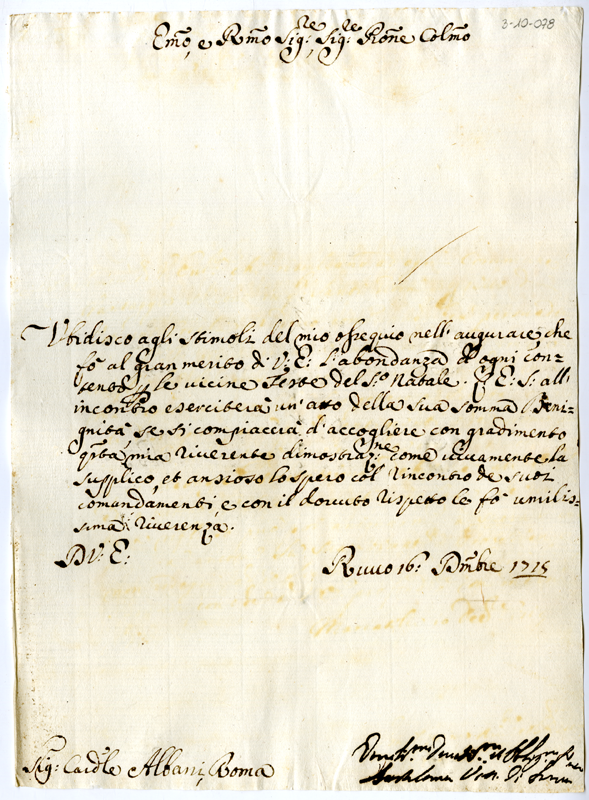 3-10-078
Emo, e Rmo Sigre, Sigre Prone Colmo
Vbidisco agli stimoli del mio ossequio nell' augurare, che
fò al gran merito di V: E: l'abondanza d' ogni con=
tento p le vicine feste del Sto Natale. V: E: s: all'
incontro eserciterà un' atto della sua somma Beni=
gnità, se si compiaccia d' accogliere con gradimento
qsta mia riverente dimostrazne, come vivamente la
supplico, et ansioso lo spero col rincontro de suoi
comandamenti, e con il dovuto rispetto le fò umilis=
sima riverenza.
D V: E:
Ruvo 16: Xmbre 1715
Sigr: Cardle Albani, Roma